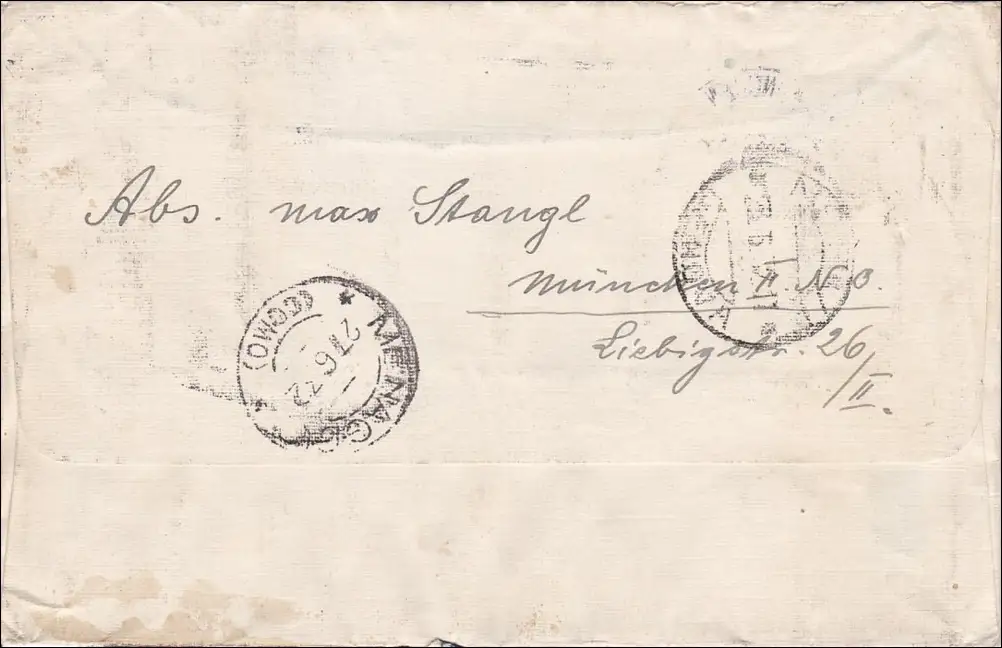 Abs. Max Stangl
München II. N.O.
Liebigstr. 26/II.
* MENAGGIO * (COMO)
27.6.22